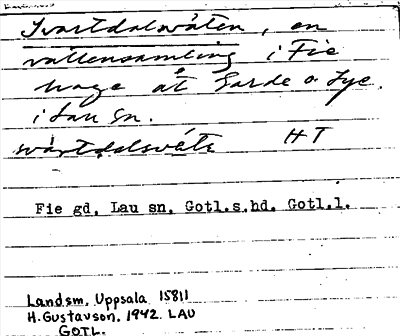 Svartdalsväten, en
vattensamling i Fie
hage åt Garde o Lye.
i Lau sn.
svartdalsväte HT
Fie gd, Lau sn, Gotl.s.hd. Gotl.l.
Landsm. Uppsala 15811
H. Gustavson. 1942. LAU
GOTL.